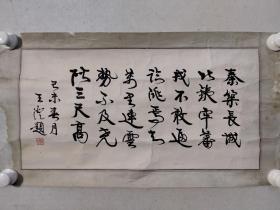 秦築長城
比鐵牢蕃
戎不敢逼
臨洮焉知
萬里連雲
勢不及堯
階三尺高
己未春月
王澄題